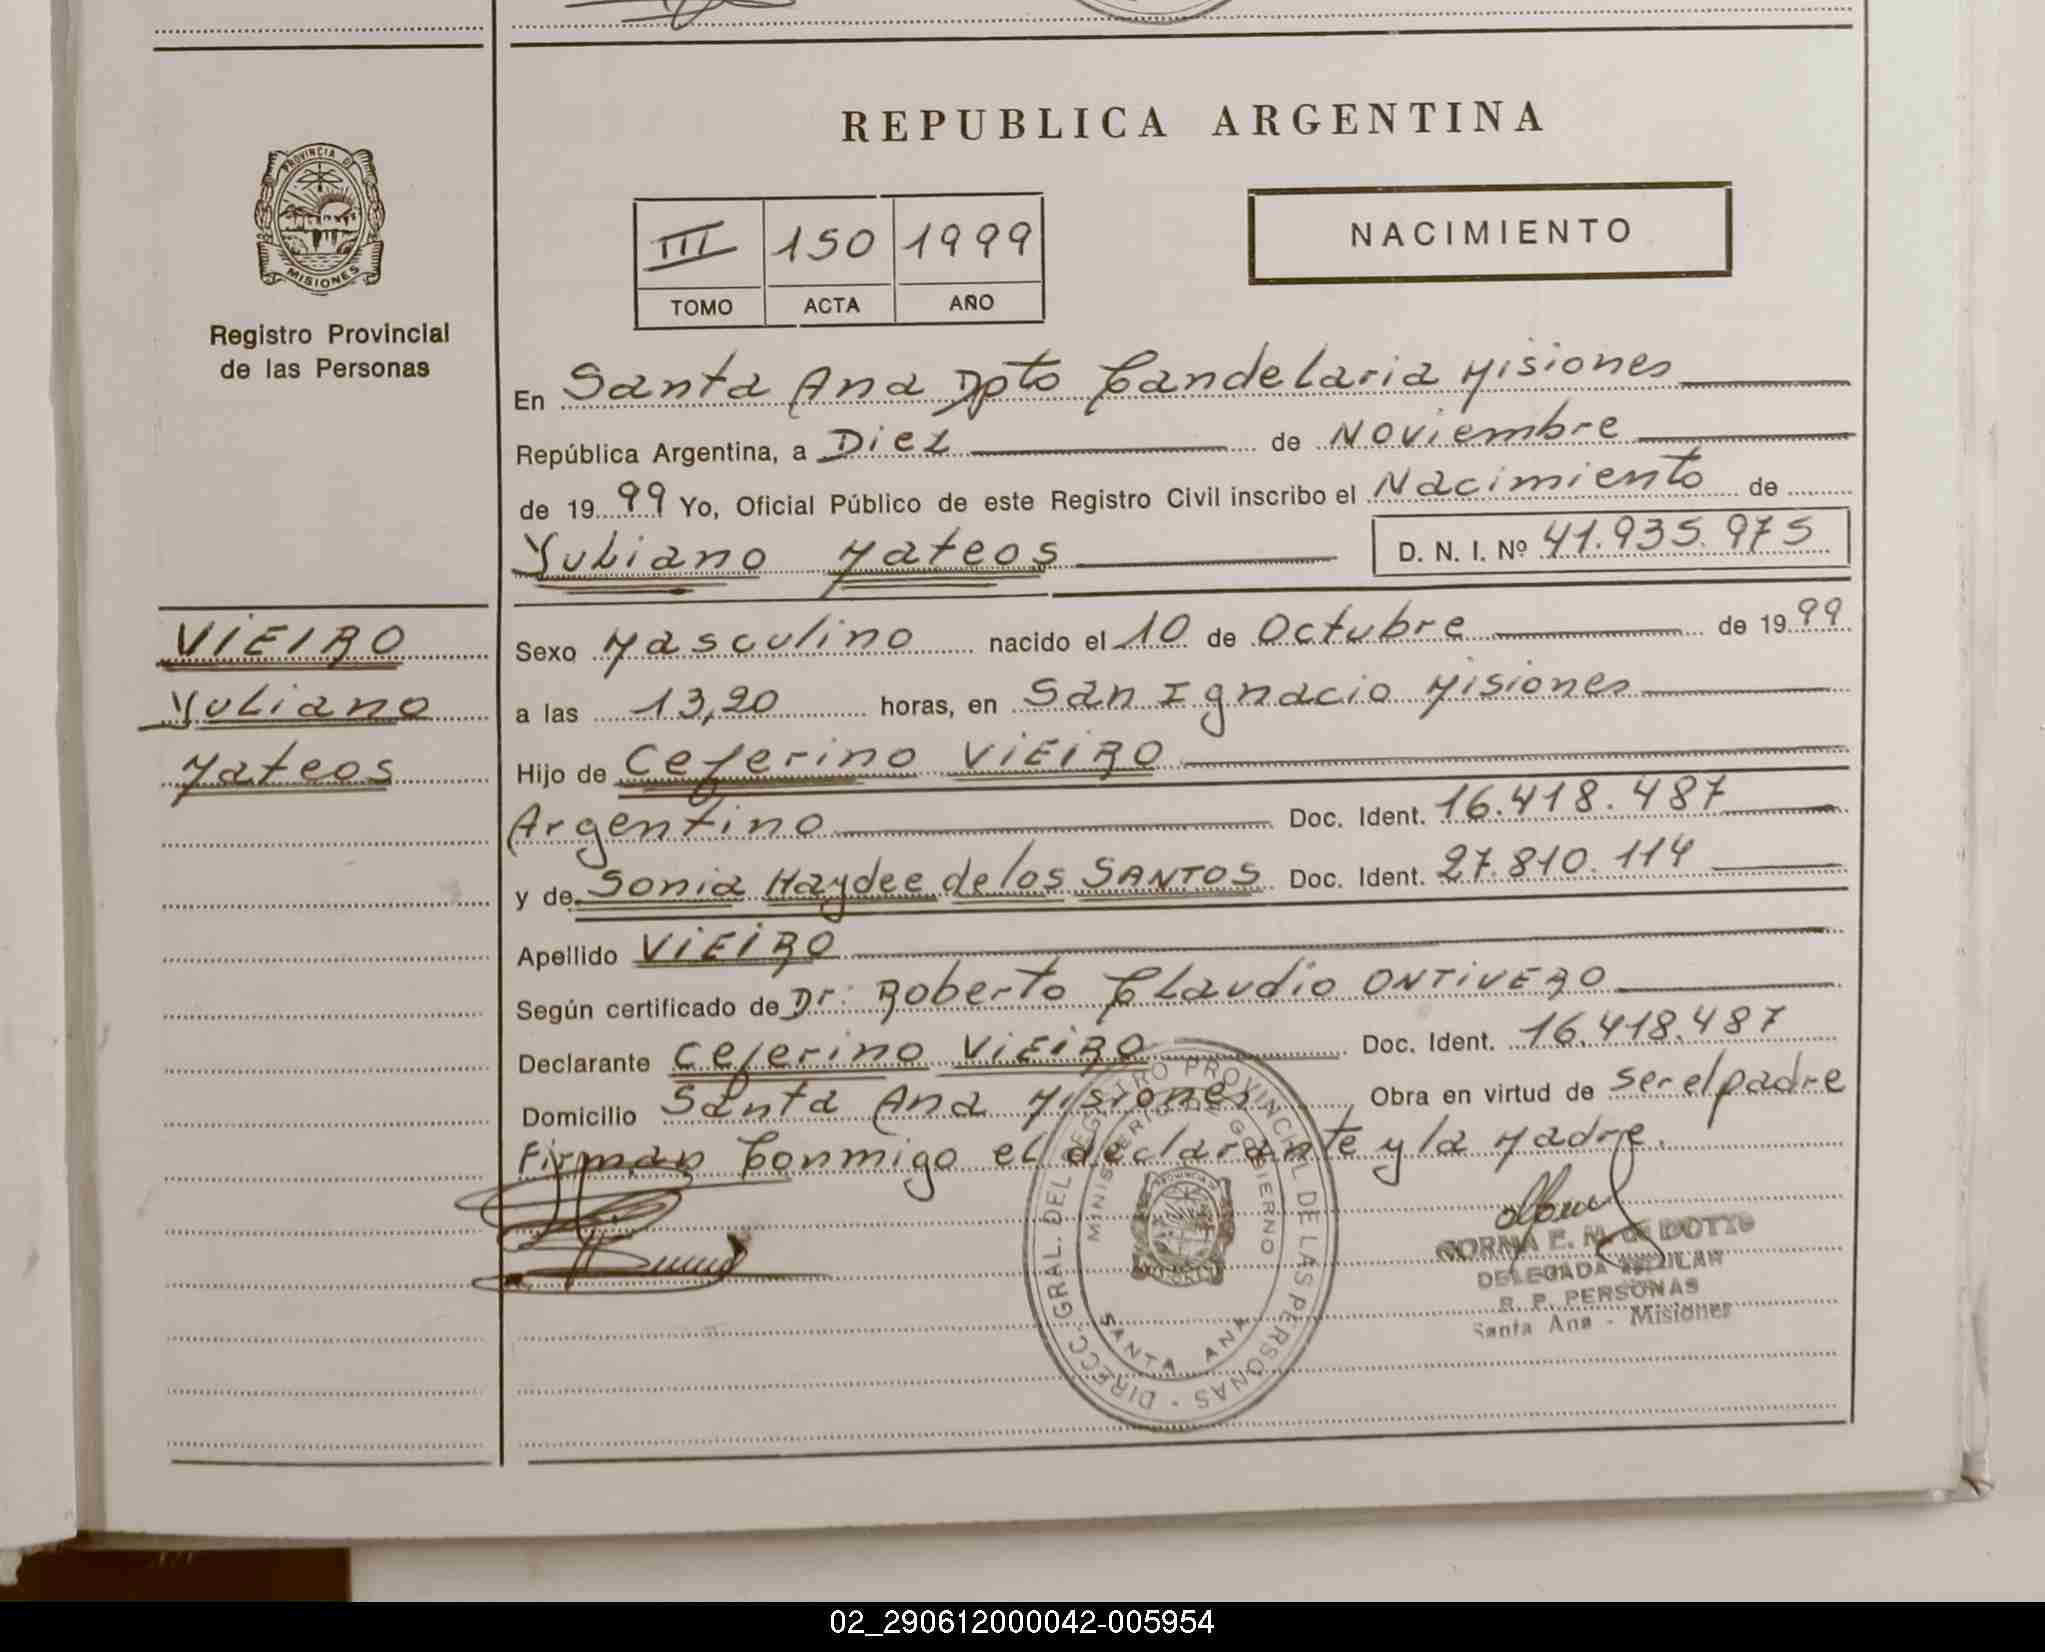 REPUBLICA ARGENTINA
PROVINCIA DE
MISIONES
Registro Provincial
de las Personas
III 150 1999
TOMO ACTA AÑO
NACIMIENTO
En Santa Ana Dpto Candelaria Misiones
República Argentina, a Diez de Noviembre
de 1999 Yo, Oficial Público de este Registro Civil inscribo el Nacimiento de
Yuliano Mateos D. N. I. Nº 41.935.975
VIEIRO
Yuliano
Mateos
Sexo Masculino nacido el 10 de Octubre de 1999
a las 13,20 horas, en San Ignacio Misiones
Hijo de Ceferino VIEIRO
Argentino Doc. Ident. 16.418.487
y de Sonia Haydee de los SANTOS Doc. Ident. 27.810.114
Apellido VIEIRO
Según certificado de Dr. Roberto Claudio ONTIVERO
Declarante Ceferino VIEIRO Doc. Ident. 16.418.487
Domicilio Santa Ana Misiones Obra en virtud de ser el padre
Firman Conmigo el declarante y la Madre.
DIRECC. GRAL. DEL REGISTRO PROVINCIAL DE LAS PERSONAS
MINISTERIO DE GOBIERNO
SANTA ANA
NORMA E. M. de DOTTO
DELEGADA
R. P. PERSONAS
Santa Ana - Misiones
02_290612000042-005954